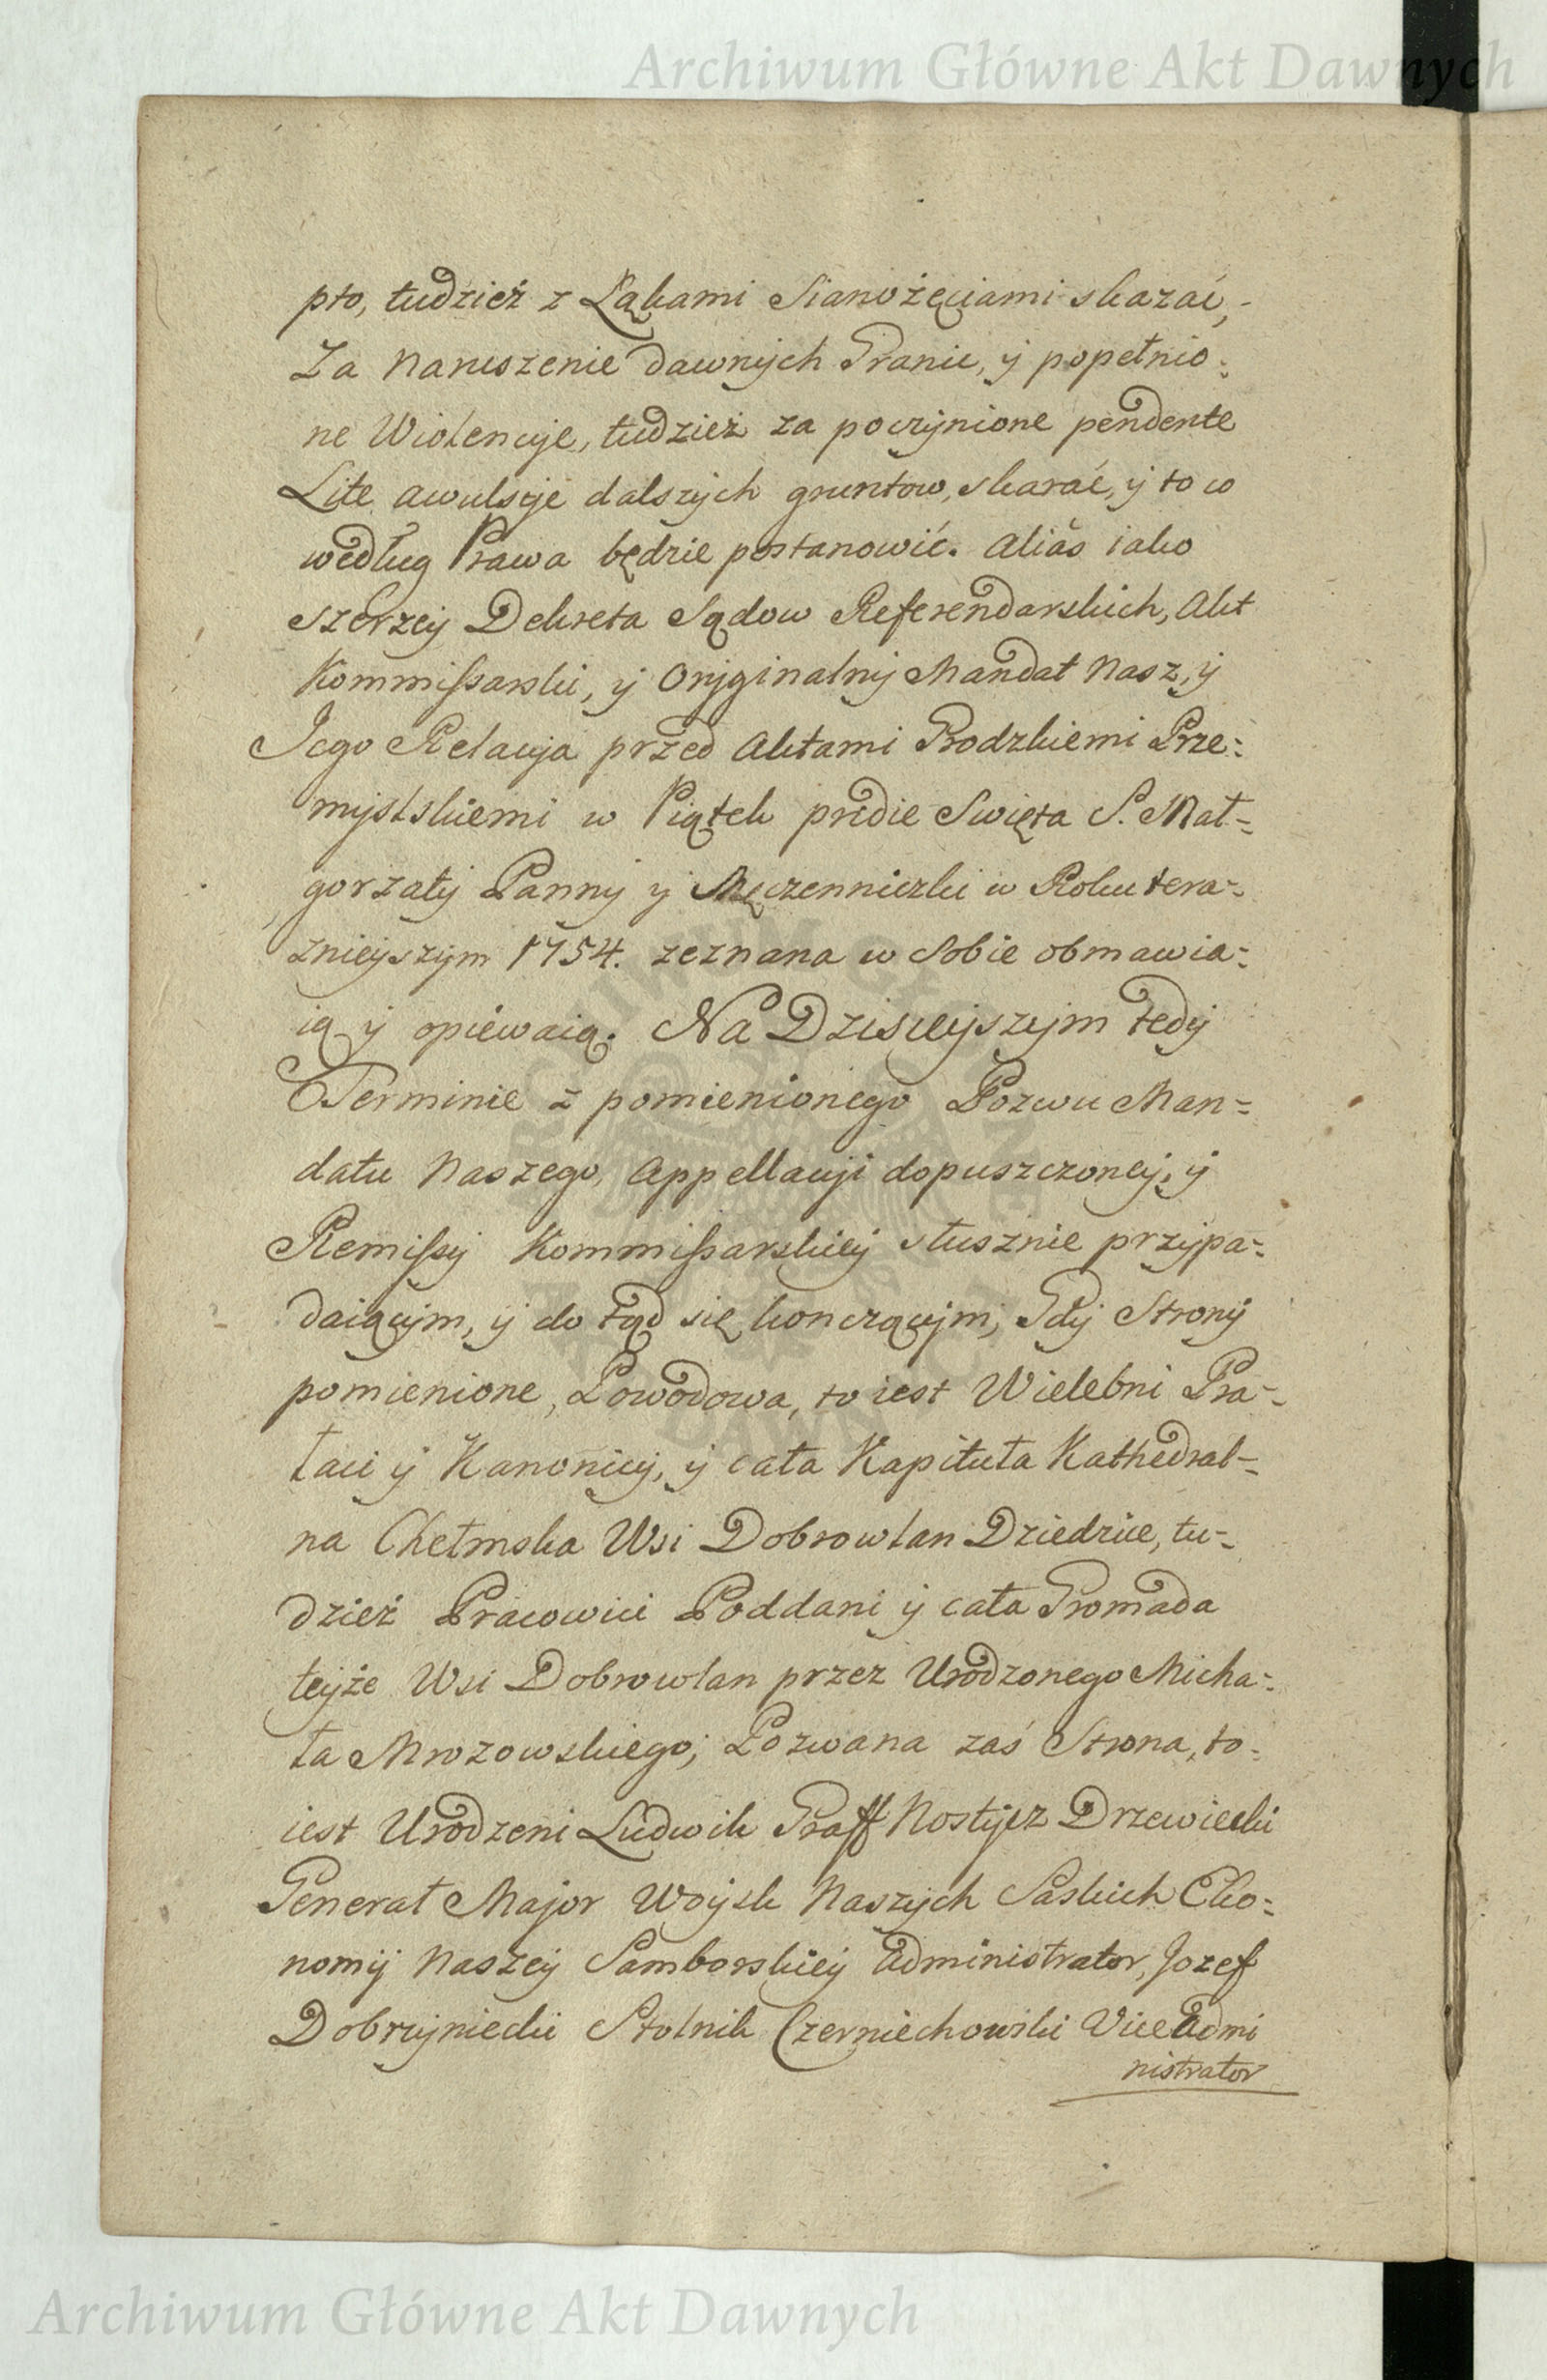 Archiwum Główne Akt Dawnych
pto, tudzież z Łąkami Sianożęciami skazać,-
Za Naruszenie dawnych Granic, ÿ popełnio-
ne Wiolencÿje, tudzież za poczÿnione pendente
Lite awulsÿje dalszÿch gruntow, skarać, ÿ to w
według Prawa będzie postanowić. Aliàs iako
szerzeÿ Dekreta Sądow Referendarskich, Akt
Kommissarski, ÿ Orÿginalnÿ Mandat Nasz, ÿ
Jego Relacÿja przed Aktami Grodzkiemi Prze-
mÿslskiemi w Piątek pridie Swięta S. Mał-
gorzatÿ Pannÿ ÿ Męczenniczki w Roku tera-
znieÿszÿm 1754. zeznana w sobie obmawia-
ią ÿ opiewaią. Na Dzisieÿszÿm tedÿ
Terminie z pomienionego Pozwu Man-
datu Naszego, Appellacÿi dopuszczoneÿ, ÿ
Remissÿ Kommissarskieÿ słusznie przÿpa-
daiącÿm, ÿ do tąd się konczącÿm, Gdÿ Stronÿ
pomienione, Powodowa, to iest Wielebni Pra-
łaci ÿ Kanonicÿ, ÿ cała Kapituła Kathedral-
na Chełmska Wsi Dobrowlan Dziedzice, tu-
dzież Pracowici Poddani ÿ cała Gromada
teÿże Wsi Dobrowlan przez Urodzonego Micha-
ła Mrozowskiego; Pozwana zaś Strona, to-
iest Urodzeni Ludwik Graff Nostÿcz Drzewiecki
Generał Major Woÿsk Naszÿch Saskich Eko-
nomÿ Naszeÿ Samborskieÿ Administrator, Jozef
Dobrzÿniecki Stolnik Czerniechowski ViceAdmi
nistrator
Archiwum Główne Akt Dawnych